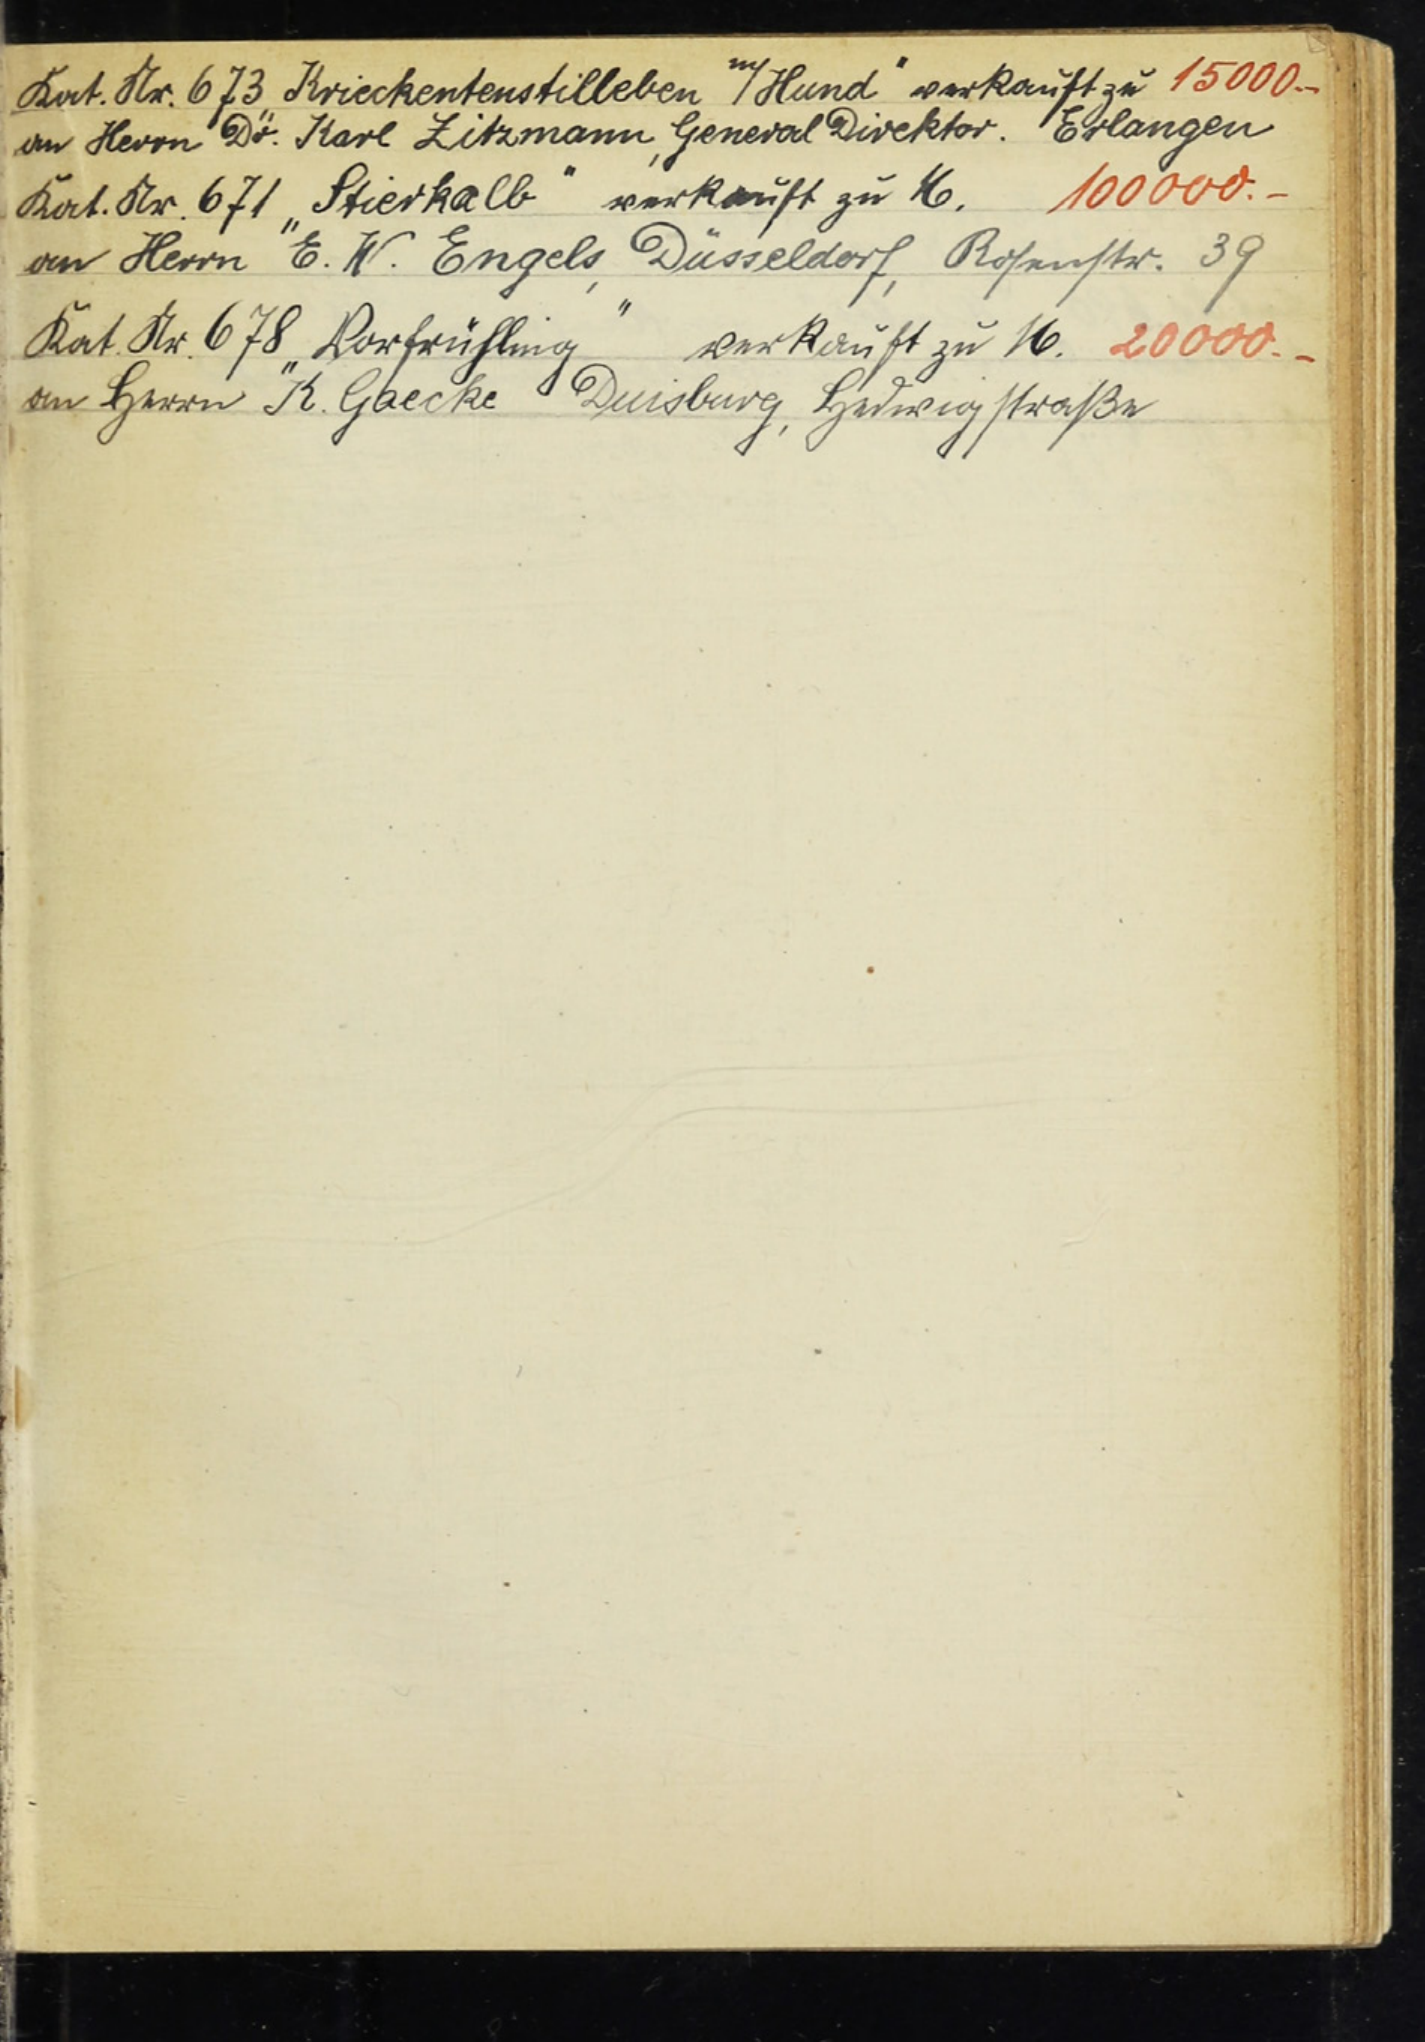 Kat. Nr. 673 „Krieckentenstilleben m/Hund" verkauft zu 15000.-
an Herrn Dr. Karl Zitzmann, General Direktor. Erlangen
Kat. Nr. 671 „Stierkalb" verkauft zu M. 100000.-
an Herrn E. W. Engels, Düsseldorf, Rosenstr. 39
Kat. Nr. 678 „Vorfrühling" verkauft zu M. 20000.-
an Herrn K. Gaecke Duisburg, Hedwigstraße